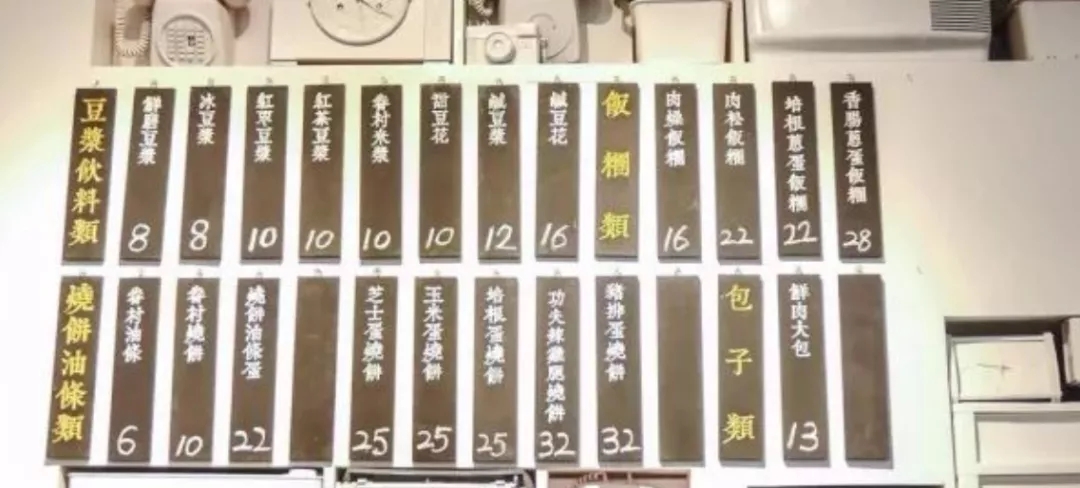 豆漿飲料類
鮮磨豆漿 8
冰豆漿 8
紅棗豆漿 10
紅茶豆漿 10
眷村米漿 10
甜豆花 10
鹹豆漿 12
鹹豆花 16
飯糰類
肉燥飯糰 16
肉松飯糰 22
培根蔥蛋飯糰 22
香腸蔥蛋飯糰 28
燒餅油條類
眷村油條 6
眷村燒餅 10
燒餅油條蛋 22
芝士蛋燒餅 25
玉米蛋燒餅 25
培根蛋燒餅 25
功夫辣雞腿燒餅 32
豬排蛋燒餅 32
包子類
鮮肉大包 13